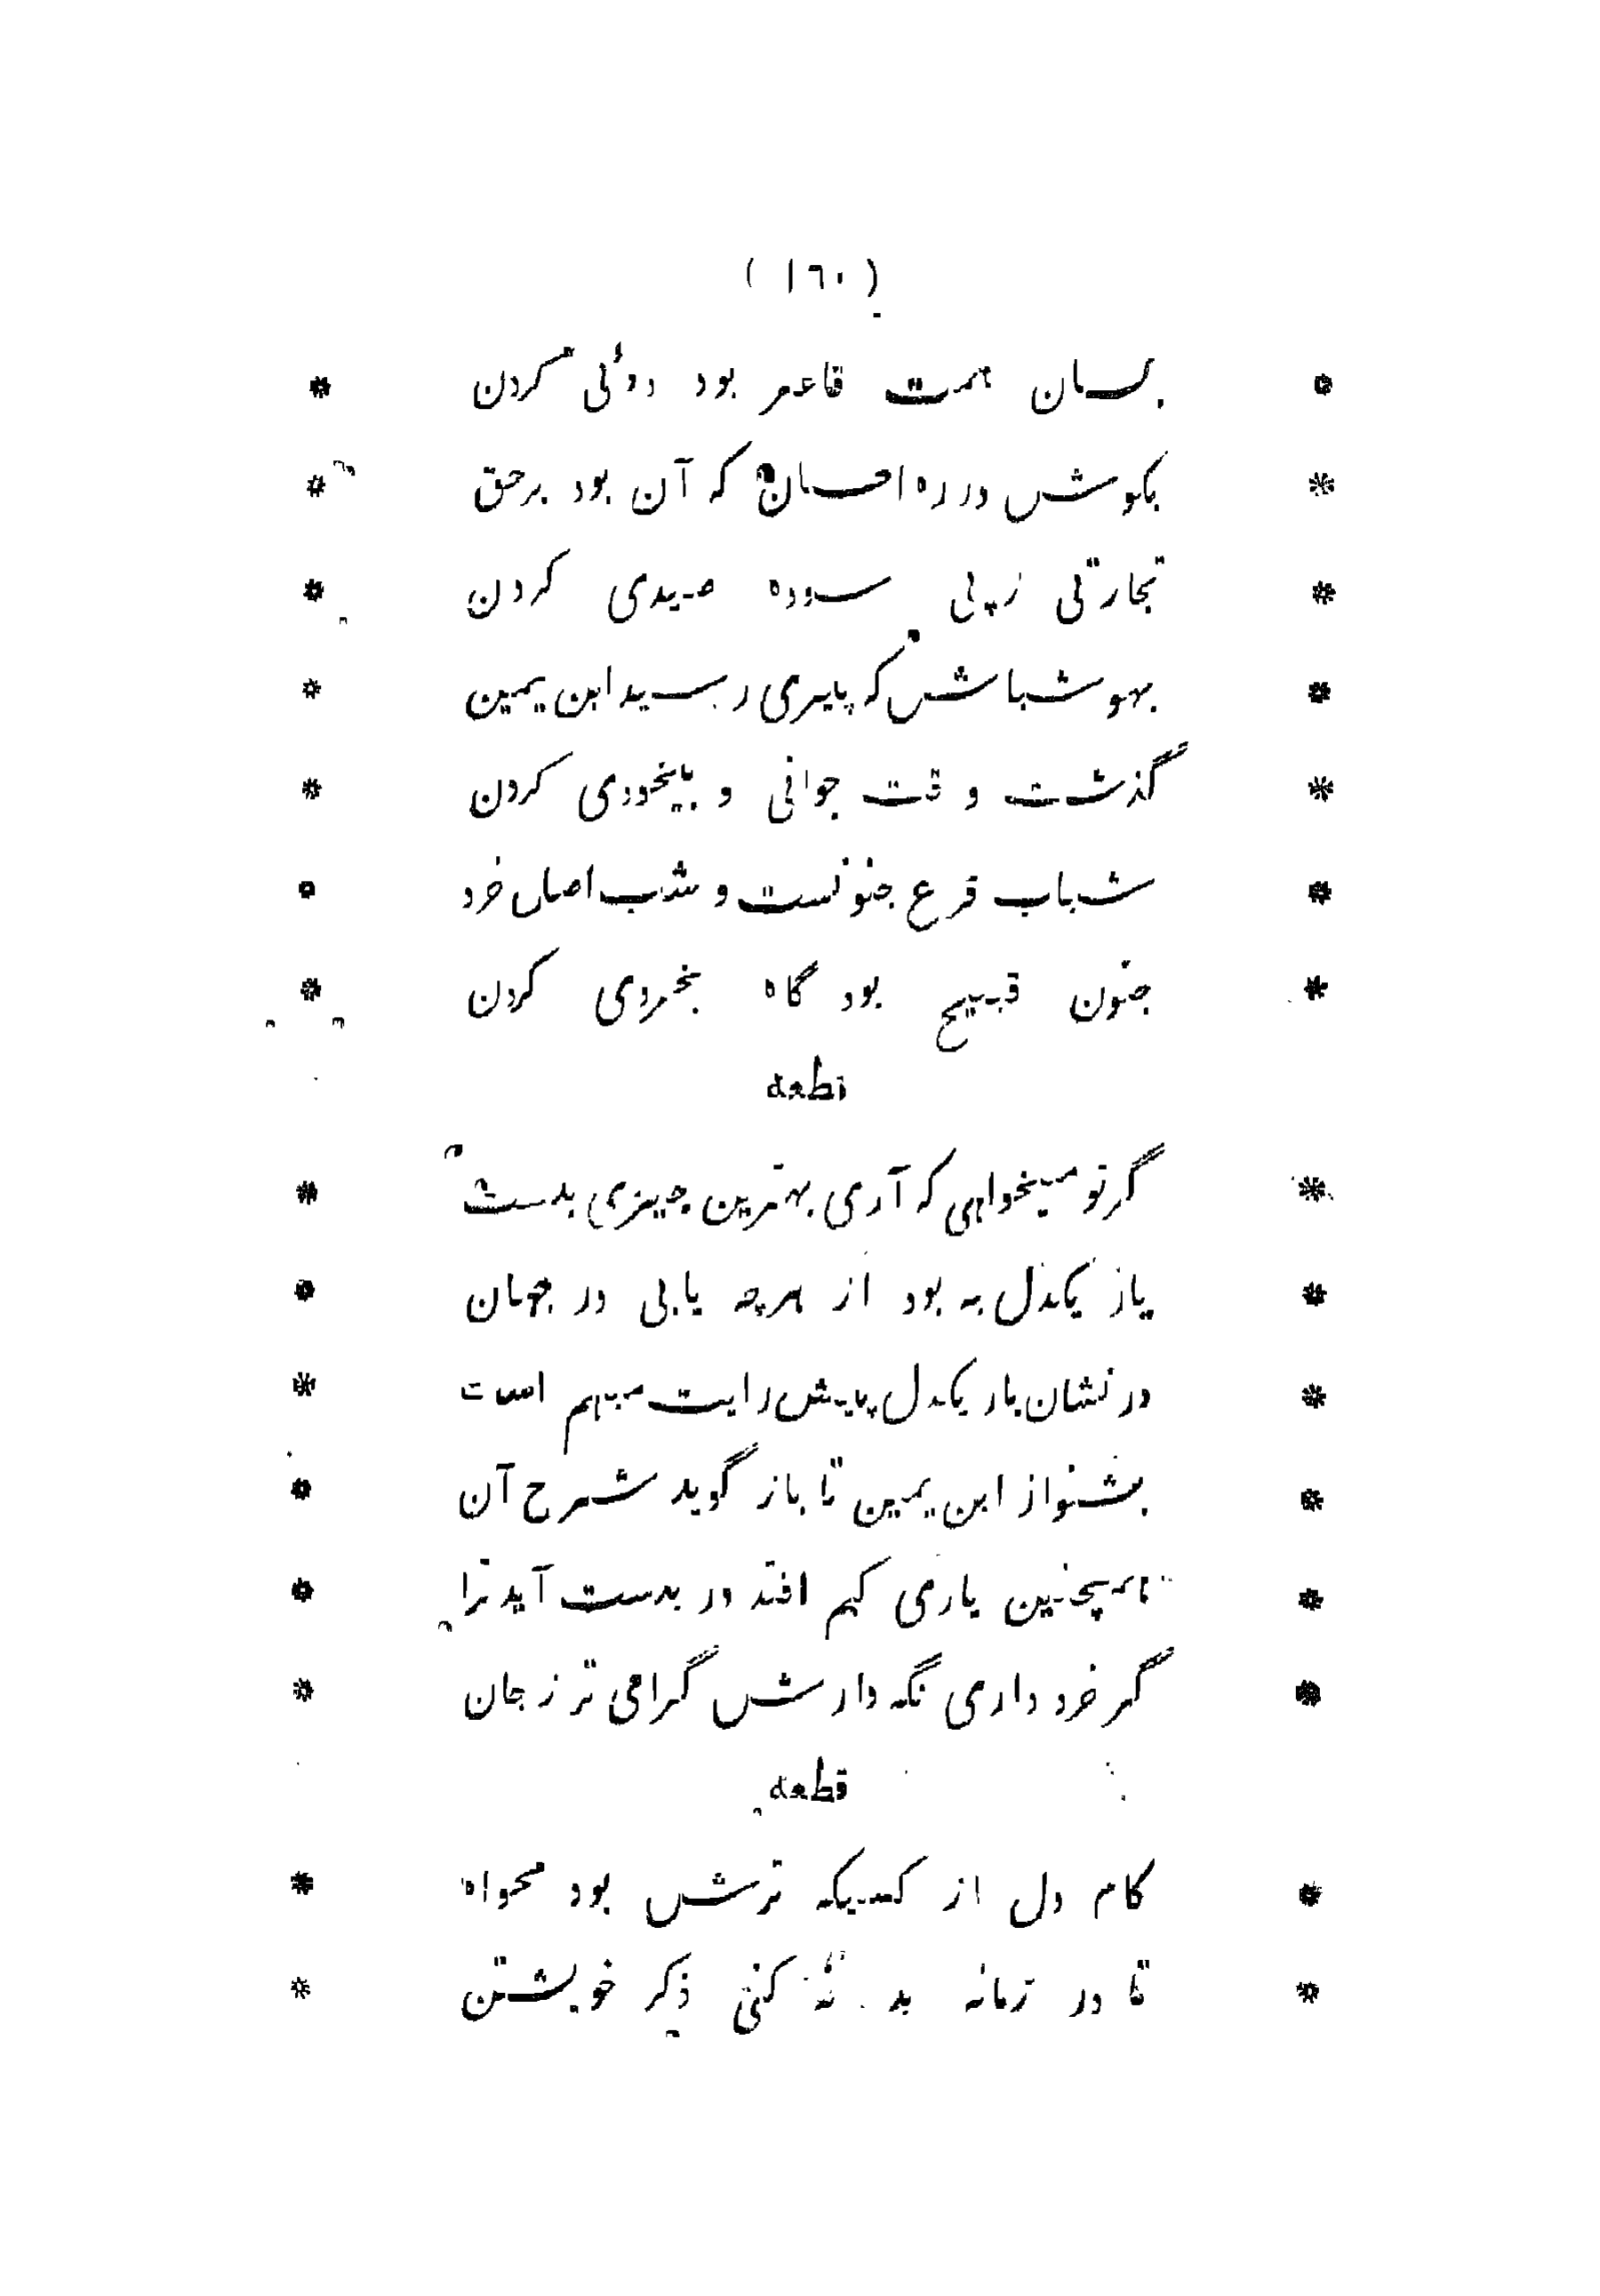 ( ١٦٠ )
* بسان همت قاصر بود دوئی کردن *
* بکوش در ره احسان که آن بود برحق *
* تجارتی ز پی سوده صیدی کردن *
* بهوشباش که پایری رسید ابن یمین *
* گذشت وقت جوانی و بیخودی کردن *
* شباب فرع جنونست و شیب اصل خرد *
* جنون قبیح بود گاه بخردی کردن *
قطعه
* گر تو میخواهی که آری بهترین چیزی بدست *
* یار یکدل به بود از هرچه یابی در جهان *
* در نشان یار یکدل پیش رایت مبهم است *
* بشنو از ابن یمین تا باز گوید شرح آن *
* اینچنین یاری کم افتد ور بدست آید ترا *
* گر خرد داری نگه دارش گرامی تر ز جان *
قطعه
* کام دل از کسیکه ترش بود مخواه *
* تا در زمانه بد کنی ذکر خویشتن *